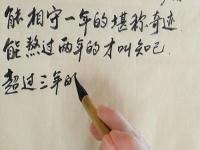 能相守一年的堪称奇迹
能熬过两年的才叫知己
超过三年的